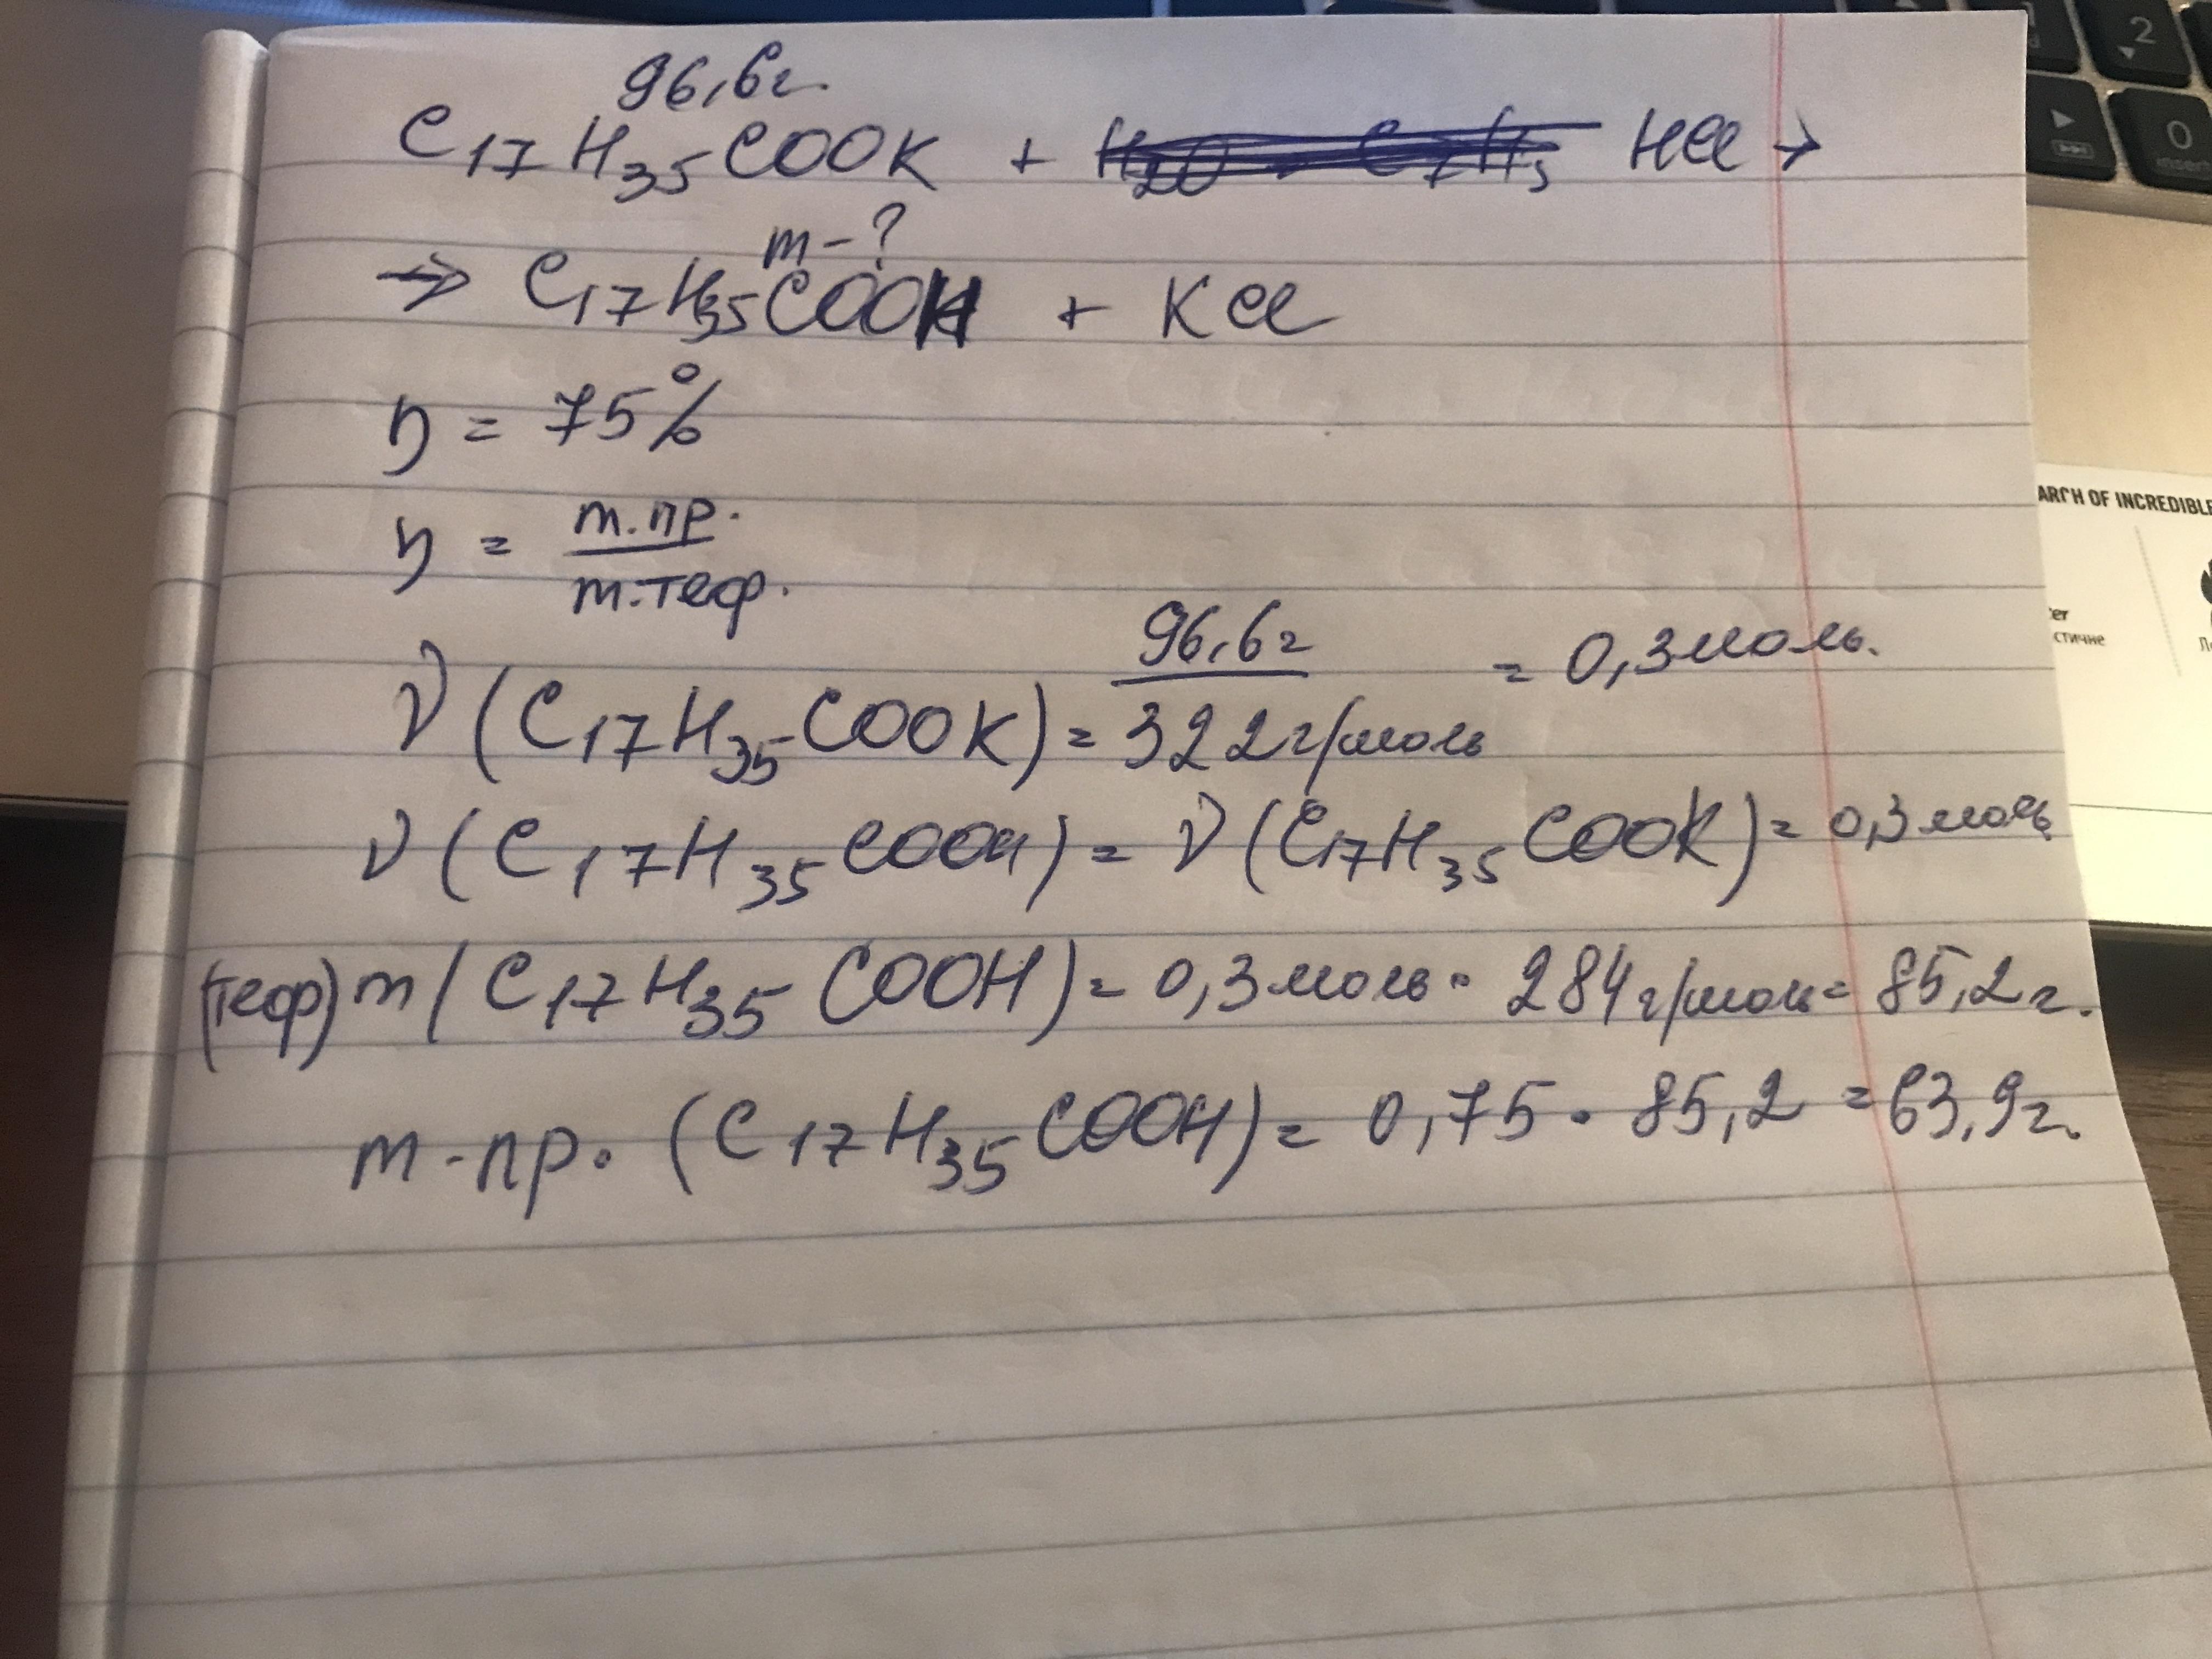 96,6г.
C17H35COOK + HCl →
m-?
→ C17H35COOH + KCl
η = 75%
η = m.пр. / m.теор.
ν(C17H35COOK) = 96,6г / 322г/моль = 0,3моль.
ν(C17H35COOH) = ν(C17H35COOK) = 0,3моль
(теор) m(C17H35COOH) = 0,3моль · 284г/моль = 85,2г.
m.пр. (C17H35COOH) = 0,75 · 85,2 = 63,9г.
2
0
OF INCREDIBLE
стичне